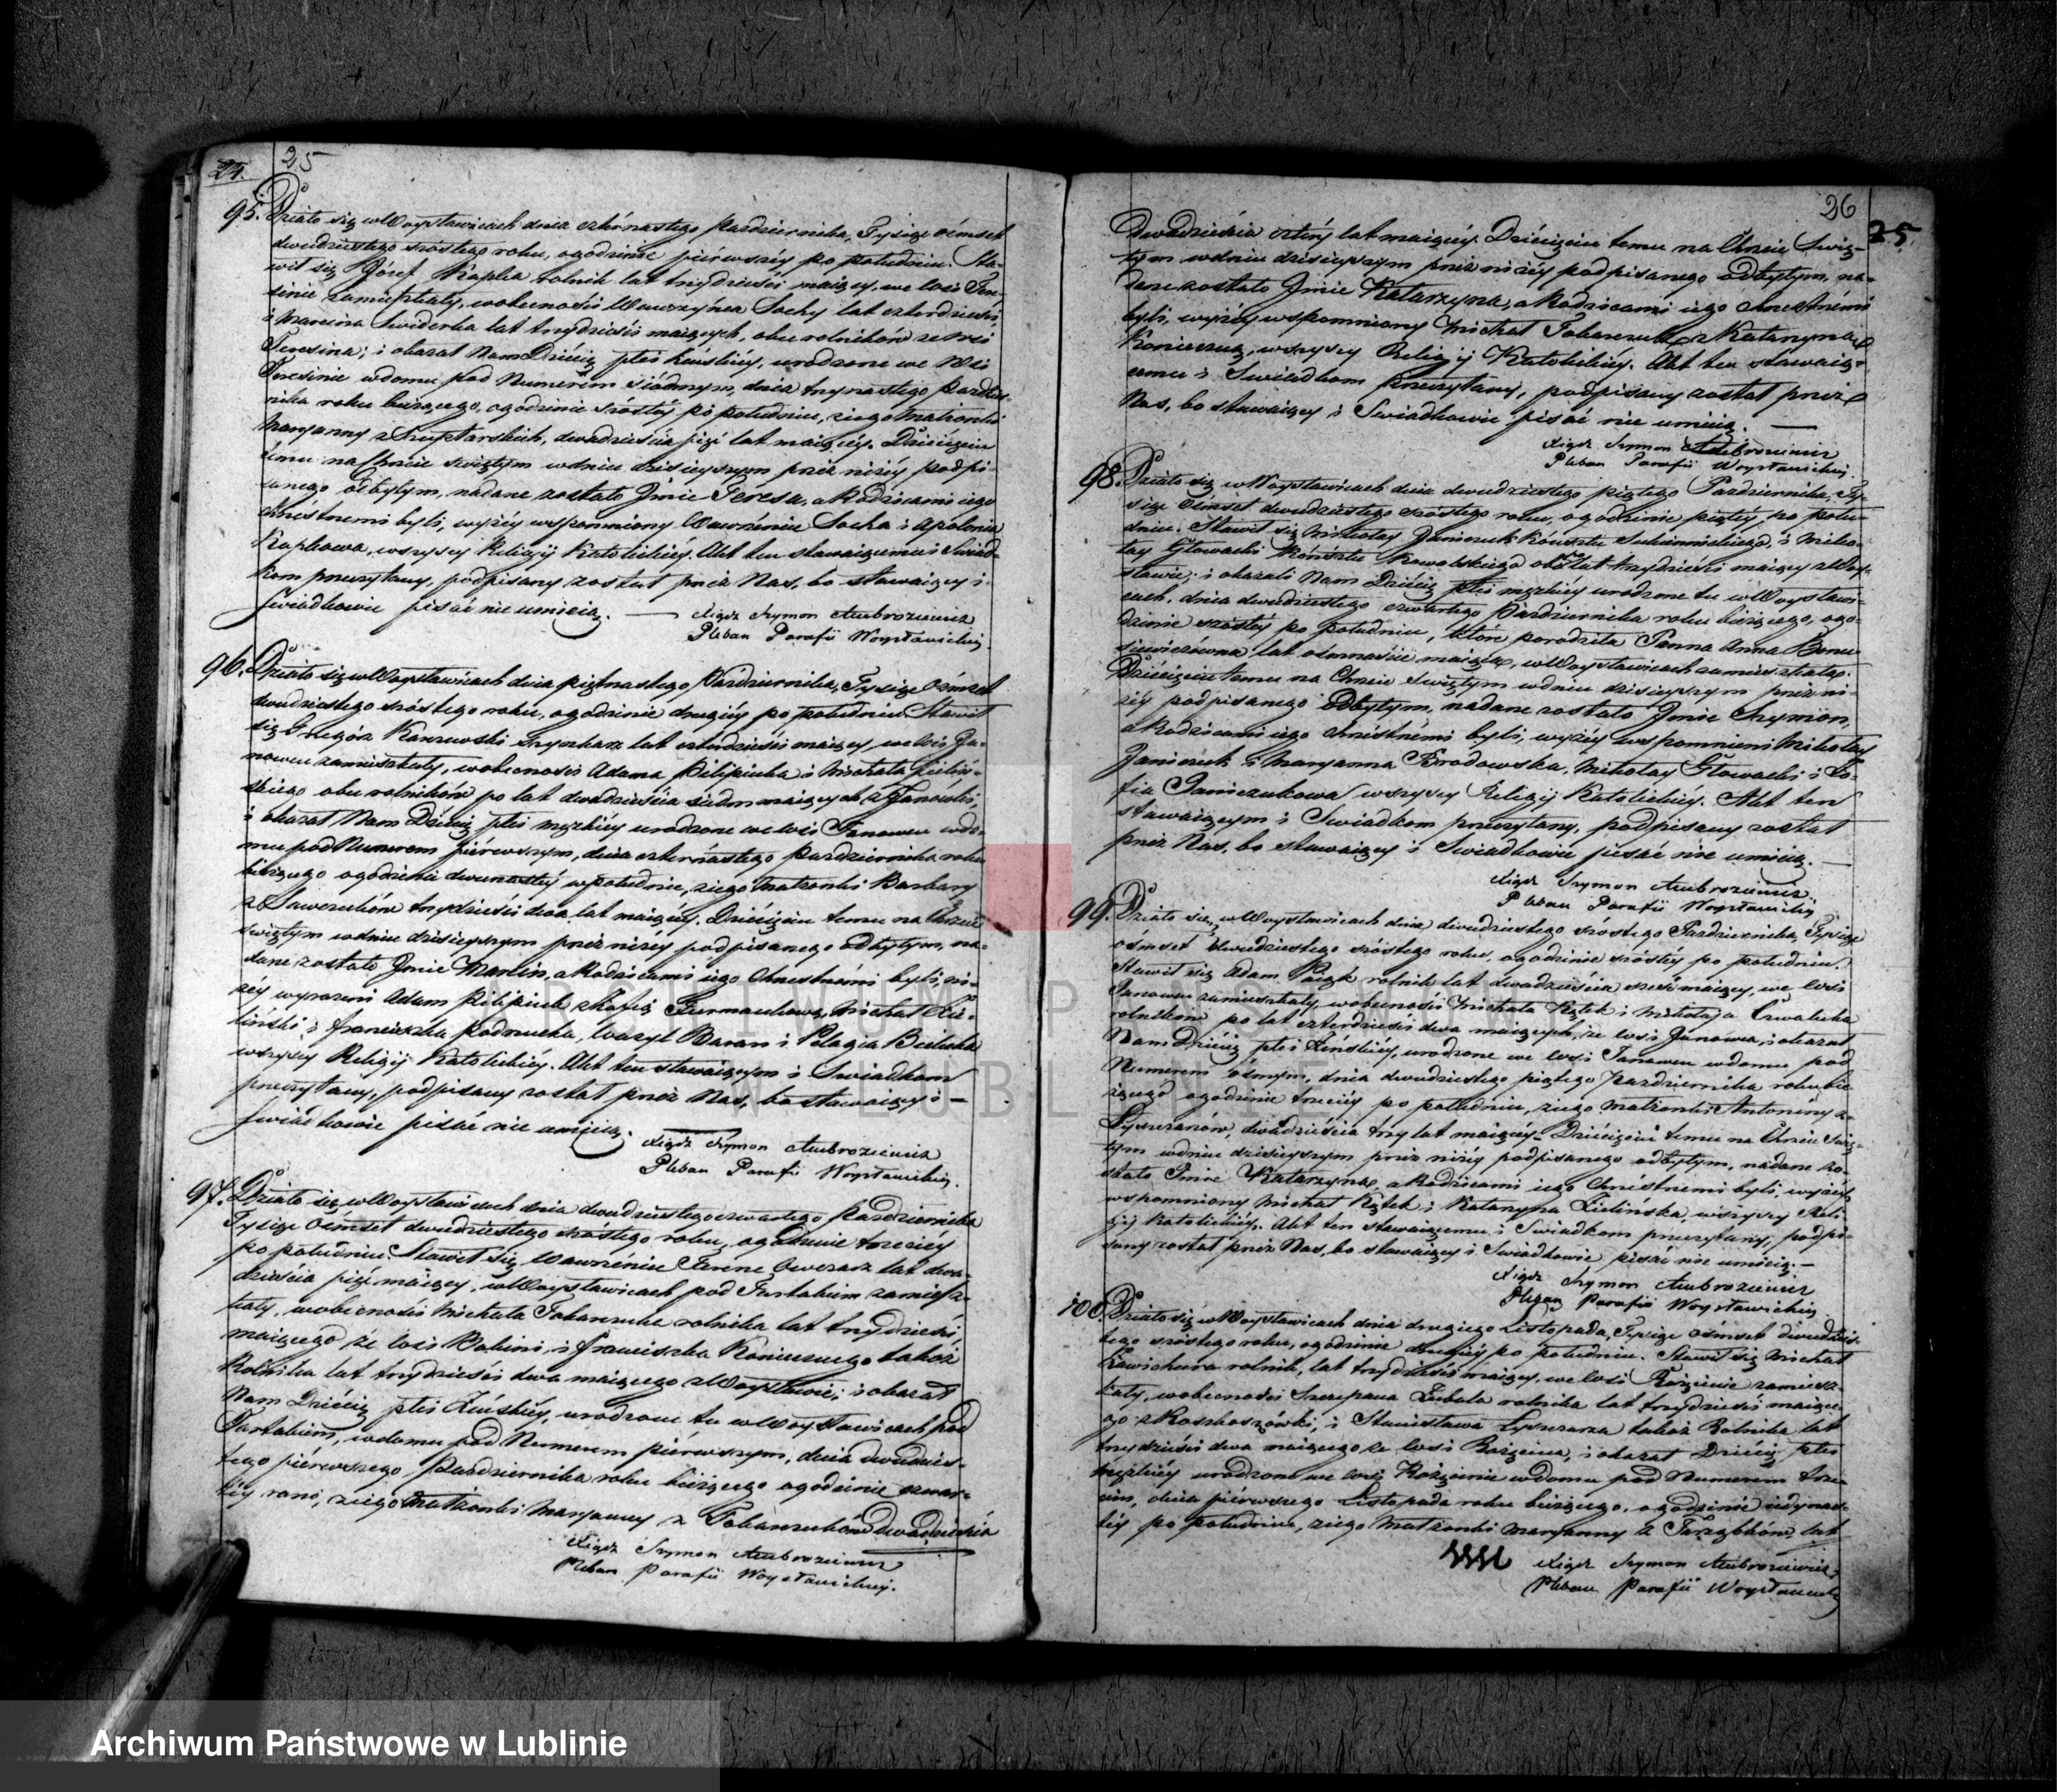 24. 25
95. Działo się w Woysławicach dnia czternastego Października, Tysiąc ośmset
dwudziestego szóstego roku, o godzinie pierwszéy po południu. Sta-
wił się Józef Kapka rolnik lat trzydzieści maiący, we wsi Te-
resinie zamieszkały, w obecności Wawrzyńca Sochy lat czterdzieści,
i Marcina Świderka lat trzydzieści maiących, obu rolników ze wsi
Teresina; i okazał Nam Dziécię płci żeńskiéy, urodzone we Wsi
Teresinie w domu pod Numerem siódmym, dnia trzynastego Paździer-
nika roku bieżącego, o godzinie szóstéy po południu, z iego Małżonki
Maryanny z dwadzieścia pięć lat maiącéy. Dziecięciu
temu na Chrzcie świętym w dniu dzisieyszym przez niżéy podpi-
sanego odbytym, nadane zostało Jmie Teresa, a Rodzicami iego
chrzestnemi byli, wyżéy wspomniony Wawrzeniec Socha i Apolonia
Kapkowa, wszyscy Religij Katolickiéy. Akt ten stawaiącemu i Świad-
kom przeczytany, podpisany został przez Nas, bo stawaiący i
Świadkowie pisać nie umieią. — Xiądz Szymon Ambroziewicz
Pleban Parafii Woysławickiéy.
96. Działo się w Woysławicach dnia piętnastego Października, Tysiąc Ośmset
dwudziestego szóstego roku, o godzinie drugiéy po południu. Stawił
się Grzegórz Karzewski lat czterdzieści maiący, we wsi Ja-
nowcu zamieszkały, w obecności Adama Pilipiuka i Michała Zieliń-
skiego obu rolników po lat dwadzieścia siedm maiących z Janówki,
i okazał Nam Dziécię płci męzkiéy urodzone we wsi Janowcu w do-
mu pod Numerem pierwszym, dnia czternastego Października roku
bieżącego o godzinie dwunastéy w południe, z iego Małżonki Barbary
z trzydzieści dwa lat maiącéy. Dziecięciu temu na Chrzcie
świętym w dniu dzisieyszym przez niżéy podpisanego odbytym, na-
dane zostało Jmie Marcin, a Rodzicami iego Chrzestnémi byli, wy-
żéy wyrażeni Adam Pilipiuk z Zofią Furmankową, Michał Zie-
liński i Franciszka Wasyl Baran i Pelagia
wszyscy Religij Katolickiéy. Akt ten stawaiącym i Świadkom
przeczytany, podpisany został przez Nas, bo stawaiący i —
Świadkowie pisać nie umieią. Xiądz Szymon Ambroziewicz
Pleban Parafii Woysławickiéy.
97. Działo się w Woysławicach dnia dwudziestego czwartego Października
Tysiąc Ośmset dwudziestego szóstego roku, o godzinie trzeciéy
po południu. Stawił się Wawrzeniec Ferenc Owczarz lat dwa-
dzieścia pięć maiący, w Woysławicach pod Tartakiem zamiesz-
kały, w obecności Michała Tokarzuka rolnika lat trzydzieści
maiącego ze wsi i Franciszka Koniecznego także
Rolnika lat trzydzieści dwa maiącego z Woysławic; i okazał
Nam Dziécię płci Żeńskiéy, urodzone tu w Woysławicach pod
Tartakiem, w domu pod Numerem pierwszym, dnia dwudzies-
tego pierwszego Października roku bieżącego o godzinie czwar-
téy rano, z iego Małżonki Maryanny z Tokarzuków Dwadzieścia
Xiądz Szymon Ambroziewicz
Pleban Parafii Woysławickiéy.
26 25.
Dwadzieścia cztéry lat maiącéy. Dziécięciu temu na Chrzcie Świę-
tym w dniu dzisieyszym przez niżéy podpisanego odbytym, na-
dane zostało Jmie Katarzyna, a Rodzicami iego Chrzestnémi
byli, wyżéy wspomniony Michał Tokarzuk z Katarzyną
Konieczną, wszyscy Religij Katolickiéy. Akt ten stawaią-
cemu i Świadkom przeczytany, podpisany został przez
Nas, bo stawaiący i Świadkowie pisać nie umieią. —
Xiądz Szymon Ambroziewicz
Pleban Parafii Woysławickiéy.
98. Działo się w Woysławicach dnia dwudziestego piątego Października, Ty-
siąc Ośmset dwudziestego szóstego roku, o godzinie piątéy po połu-
dniu. Stawił się Mikołay Janiczuk Kunsztu Sukiennickiego, i Miko-
łay Głowacki Kunsztu Kowalskiego oba lat trzydzieści maiący z Woy-
sławic; i okazali Nam Dziécię płci męzkiéy urodzone tu w Woysławi-
cach, dnia dwudziestego czwartego Października roku bieżącego, o go-
dzinie szóstéy po południu, które porodziła Panna Anna
lat ośmnaście maiąca, w Woysławicach zamieszkała.
Dziécięciu temu na Chrzcie świętym w dniu dzisieyszym przez ni-
żéy podpisanego odbytym, nadane zostało Jmie Szymon,
a Rodzicami iego chrzestnémi byli, wyżéy wspomnieni Mikołay
Janiczuk i Maryanna Brodowska, Mikołay Głowacki i Zo-
fia Janiczukowa wszyscy Religij Katolickiéy. Akt ten
stawaiącym i Świadkom przeczytany, podpisany został
przez Nas, bo stawaiący i Świadkowie pisać nie umieią. —
Xiądz Szymon Ambroziewicz
Pleban Parafii Woysławickiéy
99. Działo się w Woysławicach dnia dwudziestego szóstego Października, Tysiąc
ośmset dwudziestego szóstego roku, o godzinie szóstéy po południu.
Stawił się Adam rolnik lat dwadzieścia sześć maiący, we wsi
Janowcu zamieszkały, w obecności Michała Kątek i Mikołaja
rolników po lat czterdzieści dwa maiących, ze wsi Janówca, i okazał
Nam Dziécię płci Żeńskiéy, urodzone we wsi Janowcu w domu pod
Numerem ósmym, dnia dwudziestego piątego Października roku bie-
żącego o godzinie trzeciéy po południu, z iego Małżonki Antoniny z
dwadzieścia trzy lat maiącéy. Dziécięciu temu na Chrzcie Świę-
tym w dniu dzisieyszym przez niżéy podpisanego odbytym, nadane zo-
stało Jmie Katarzyna, a Rodzicami iego Chrzestnemi byli, wyżéy
wspomniony Michał Kątek i Katarzyna Zielińska, wszyscy Reli-
gij Katolickiéy. Akt ten stawaiącemu i Świadkom przeczytany, podpi-
sany został przez Nas, bo stawaiący i Świadkowie pisać nie umieią. —
Xiądz Szymon Ambroziewicz
Pleban Parafii Woysławickiéy
100. Działo się w Woysławicach dnia drugiego Listopada, Tysiąc Ośmset dwudzies-
tego szóstego roku, o godzinie drugiéy po południu. Stawił się Michał
rolnik, lat trzydzieści maiący, we wsi Rożęcinie zamiesz-
kały, w obecności Szczepana Zubala rolnika lat trzydzieści maiące-
go z Roszkoszówki, i Stanisława także Rolnika lat
trzydzieści dwa maiącego ze wsi Rożęcina, i okazał Dziécię płci
męzkiéy urodzone we wsi Rożęcinie w domu pod Numerem trze-
cim, dnia pierwszego Listopada roku bieżącego, o godzinie iedynas-
téy po południu, z iego Małżonki Maryanny z lat
Xiądz Szymon Ambroziewicz
Pleban Parafii Woysławickiéy
ARCHIWUM PAŃSTWOWE
W LUBLINIE
Archiwum Państwowe w Lublinie